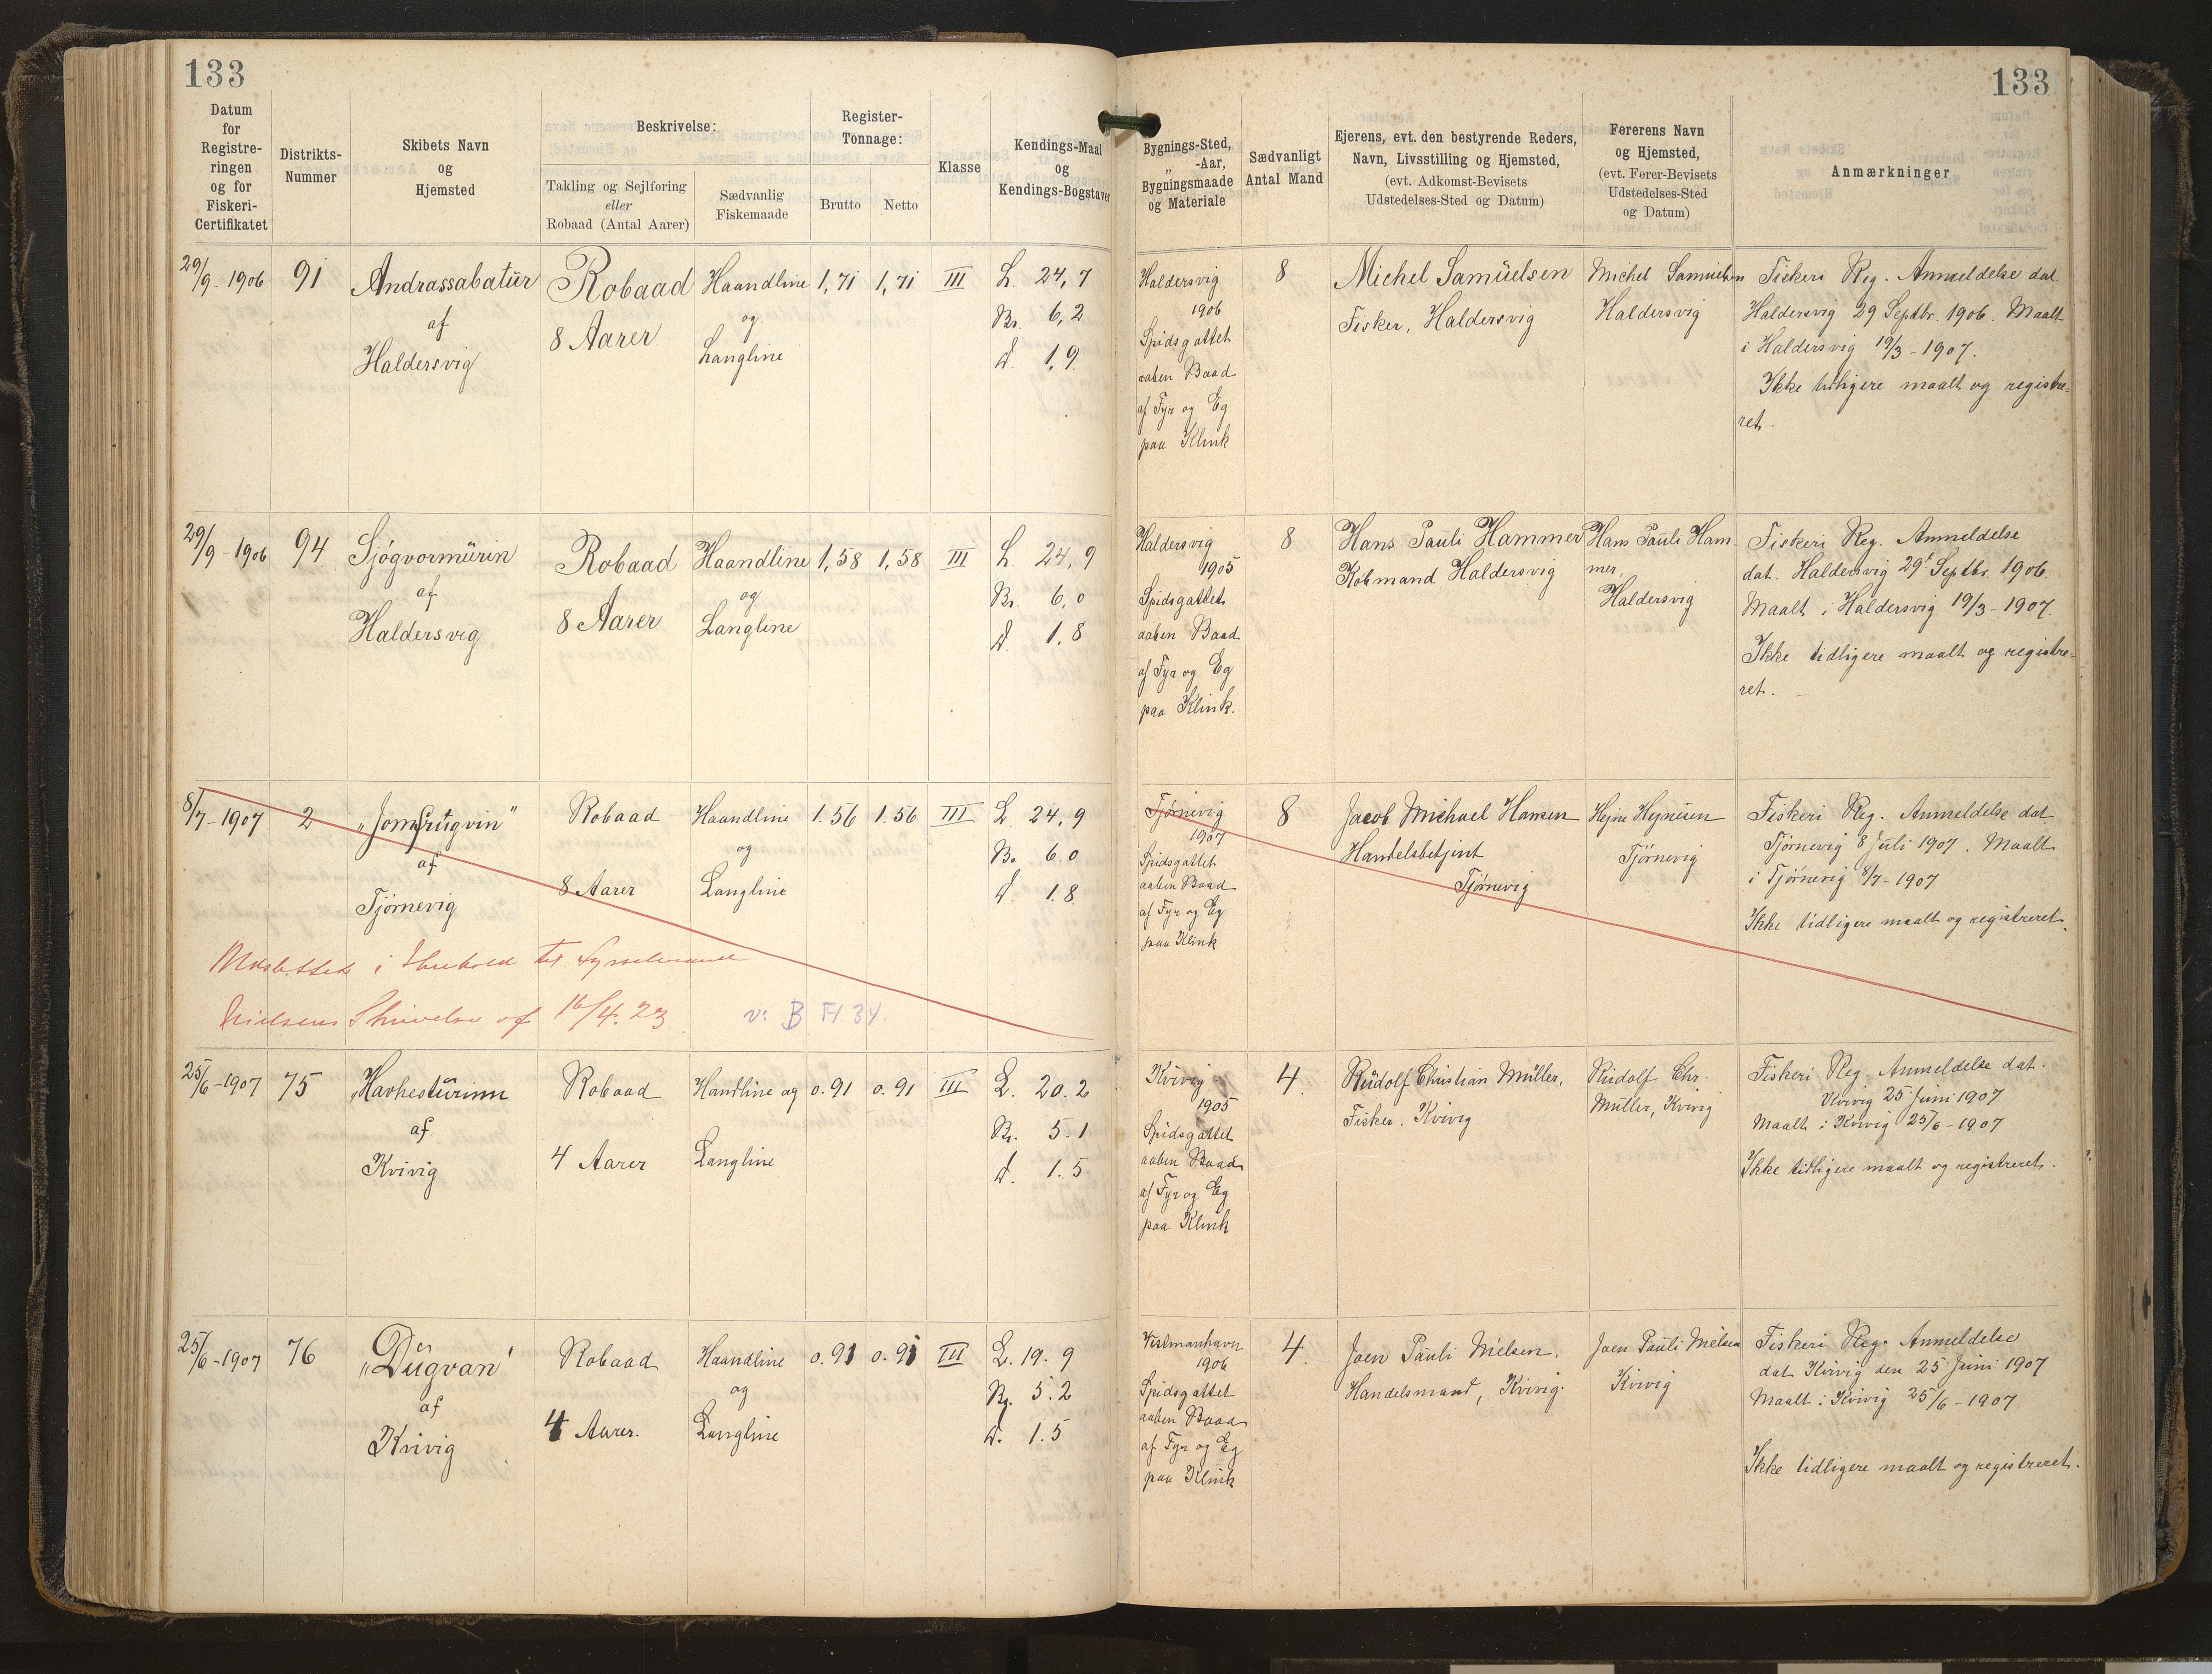 133
133
Datum
for
Registre-
ringen
og for
Fiskeri-
Certifikatet
Distrikts-
Nummer
Skibets Navn
og
Hjemsted
Beskrivelse:
Takling og Sejlføring
eller
Robaad (Antal Aarer)
Sædvanlig
Fiskemaade
Register-
Tonnage:
Brutto
Netto
Klasse
Kendings-Maal
og
Kendings-Bogstaver
Bygnings-Sted,
„ -Aar,
Bygningsmaade
og Materiale
Sædvanligt
Antal Mand
Ejerens, evt. den bestyrende Reders,
Navn, Livsstilling og Hjemsted,
(evt. Adkomst-Bevisets
Udstedelses-Sted og Datum)
Førerens Navn
og Hjemsted,
(evt. Fører-Bevisets
Udstedelses-Sted
og Datum)
Anmærkninger
29/9 - 1906
91
Andrassabatur
af
Haldersvig
Robaad
8 Aarer
Haandline
og
Langline
1,71
1,71
III
L. 24,7
Br. 6,2
d. 1,9
Haldersvig
1906
Spidsgattet
aaben Baad
af Fyr og Eg
paa Klink
8
Michel Samuelsen
Fisker, Haldersvig
Michel Samuelsen
Haldersvig
Fiskeri Reg. Anmeldelse dat.
Haldersvig 29 Septbr. 1906. Maalt
i Haldersvig 19/3 - 1907.
Ikke tidligere maalt og registre-
ret.
29/9 - 1906
94
Sjógvormurin
af
Haldersvig
Robaad
8 Aarer
Haandline
og
Langline
1,58
1,58
III
L. 24,9
Br. 6,0
d. 1.8
Haldersvig
1905
Spidsgattet
aaben Baad
af Fyr og Eg
paa Klink.
8
Hans Pauli Hammer
Købmand Haldersvig
Hans Pauli Ham-
mer,
Haldersvig
Fiskeri Reg. Anmeldelse
dat. Haldersvig 29' Septbr. 1906.
Maalt i Haldersvig 19/3 - 1907.
Ikke tidligere maalt og registre-
ret.
8/7 - 1907
2
„Jomfrugvin"
af
Tjørnevig
Robaad
8 Aarer
Haandline
og
Langline
1.56
1.56
III
L. 24,9
Br. 6.0
d. 1.8
Tjørnevig
1907
Spidsgattet
aaben Baad
af Fyr og Eg
paa Klink
8
Jacob Michael Hansen
Handelsbetjent
Tjørnevig
Hejne Hejnesen
Tjørnevig
Fiskeri Reg. Anmeldelse dat.
Tjørnevig 8 Juli 1907. Maalt
i Tjørnevig 8/7 - 1907
Ikke tidligere maalt og registreret.
Udslettet i Henhold til Sysselmand
Nielsens Skrivelse af 16/4. 23
v: B H 34.
25/6 - 1907
75
„Havhesturinn
af
Kvivig
Robaad
4 Aarer
Handline og
Langline
0.91
0.91
III
L. 20.2
Br. 5.1
d. 1.5
Kvivig
1905
Spidsgattet
aaben Baad
af Fyr og Eg
paa Klink
4.
Rudolf Christian Müller,
Fisker, Kvivig
Rudolf Chr.
Müller, Kvivig
Fiskeri Reg. Anmeldelse dat.
Kvivig 25 Juni 1907
Maalt i Kvivig 25/6 - 1907
Ikke tidligere maalt og registreret.
25/6 - 1907
76
„Dugvan"
af
Kvivig
Robaad
4 Aarer.
Haandline
og
Langline
0.91
0.91
III
L. 19.9
Br. 5.2
d. 1.5
Vestmanhavn
1906
Spidsgattet
aaben Baad
af Fyr og Eg
paa Klink
4.
Joen Pauli Nielsen,
Handelsmand, Kvivig.
Joen Pauli Nielsen
Kvivig
Fiskeri Reg. Anmeldelse
dat Kvivig den 25 Juni 1907
Maalt i Kvivig 25/6 - 1907
Ikke tidligere maalt og registreret.